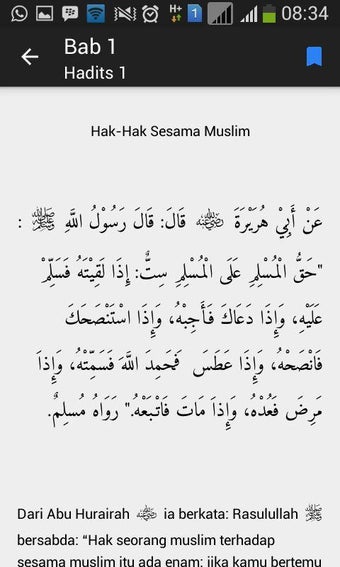 08:34
Bab 1
Hadits 1
Hak-Hak Sesama Muslim
عَنْ أَبِيْ هُرَيْرَةَ رضي الله عنه قَالَ: قَالَ رَسُوْلُ اللَّهِ ﷺ :
"حَقُّ الْمُسْلِمِ عَلَى الْمُسْلِمِ سِتٌّ: إِذَا لَقِيْتَهُ فَسَلِّمْ
عَلَيْهِ، وَإِذَا دَعَاكَ فَأَجِبْهُ، وَإِذَا اسْتَنْصَحَكَ
فَانْصَحْهُ، وَإِذَا عَطَسَ فَحَمِدَ اللَّهَ فَسَمِّتْهُ، وَإِذاَ
مَرِضَ فَعُدْهُ، وَإِذاَ مَاتَ فَاتْبَعْهُ." رَوَاهُ مُسلِمٌ.
Dari Abu Hurairah رضي الله عنه ia berkata: Rasulullah ﷺ
bersabda: “Hak seorang muslim terhadap
sesama muslim itu ada enam: jika kamu bertemu